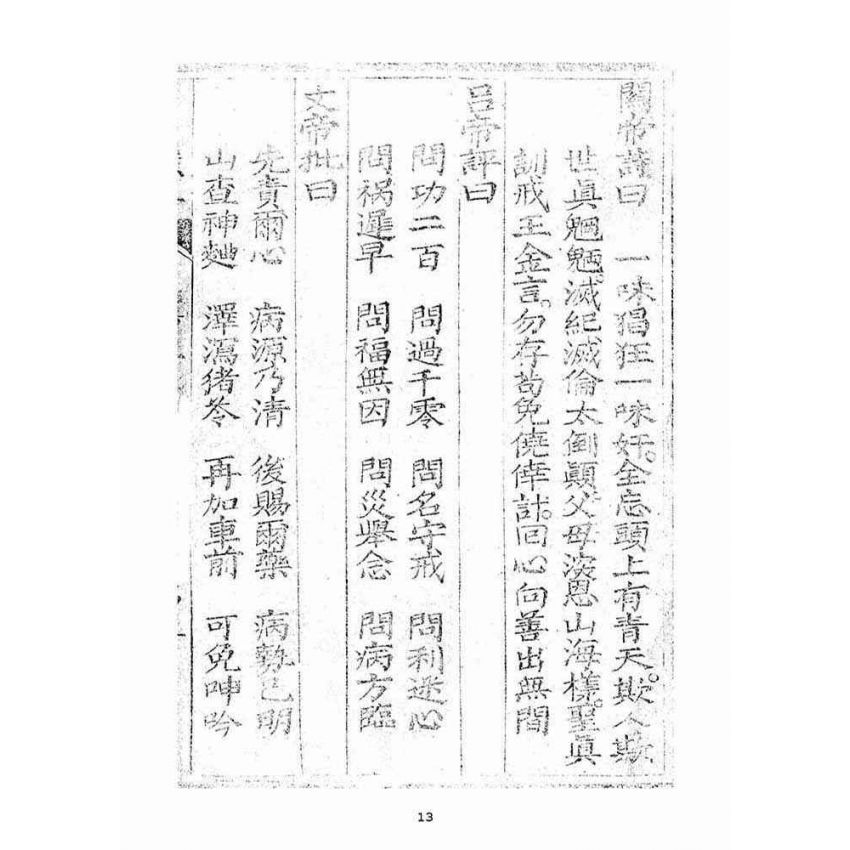 關帝諱曰　一味猖狂一味奸。全忘頭上有青天。欺人欺
世真魍魎。滅紀滅倫太倒顛。父母深恩山海樣。聖真
訓戒玉金言。勿存苟免僥倖計。回心向善出無間
呂帝評曰
問功二百　問過千零　問名守戒　問利遂心
問祸遲早　問福無因　問災舉念　問病方臨
文帝批曰
先責爾心　病源乃清　後賜爾藥　病勢已明
山查神麯　澤瀉猪苓　再加車前　可免呻吟
13